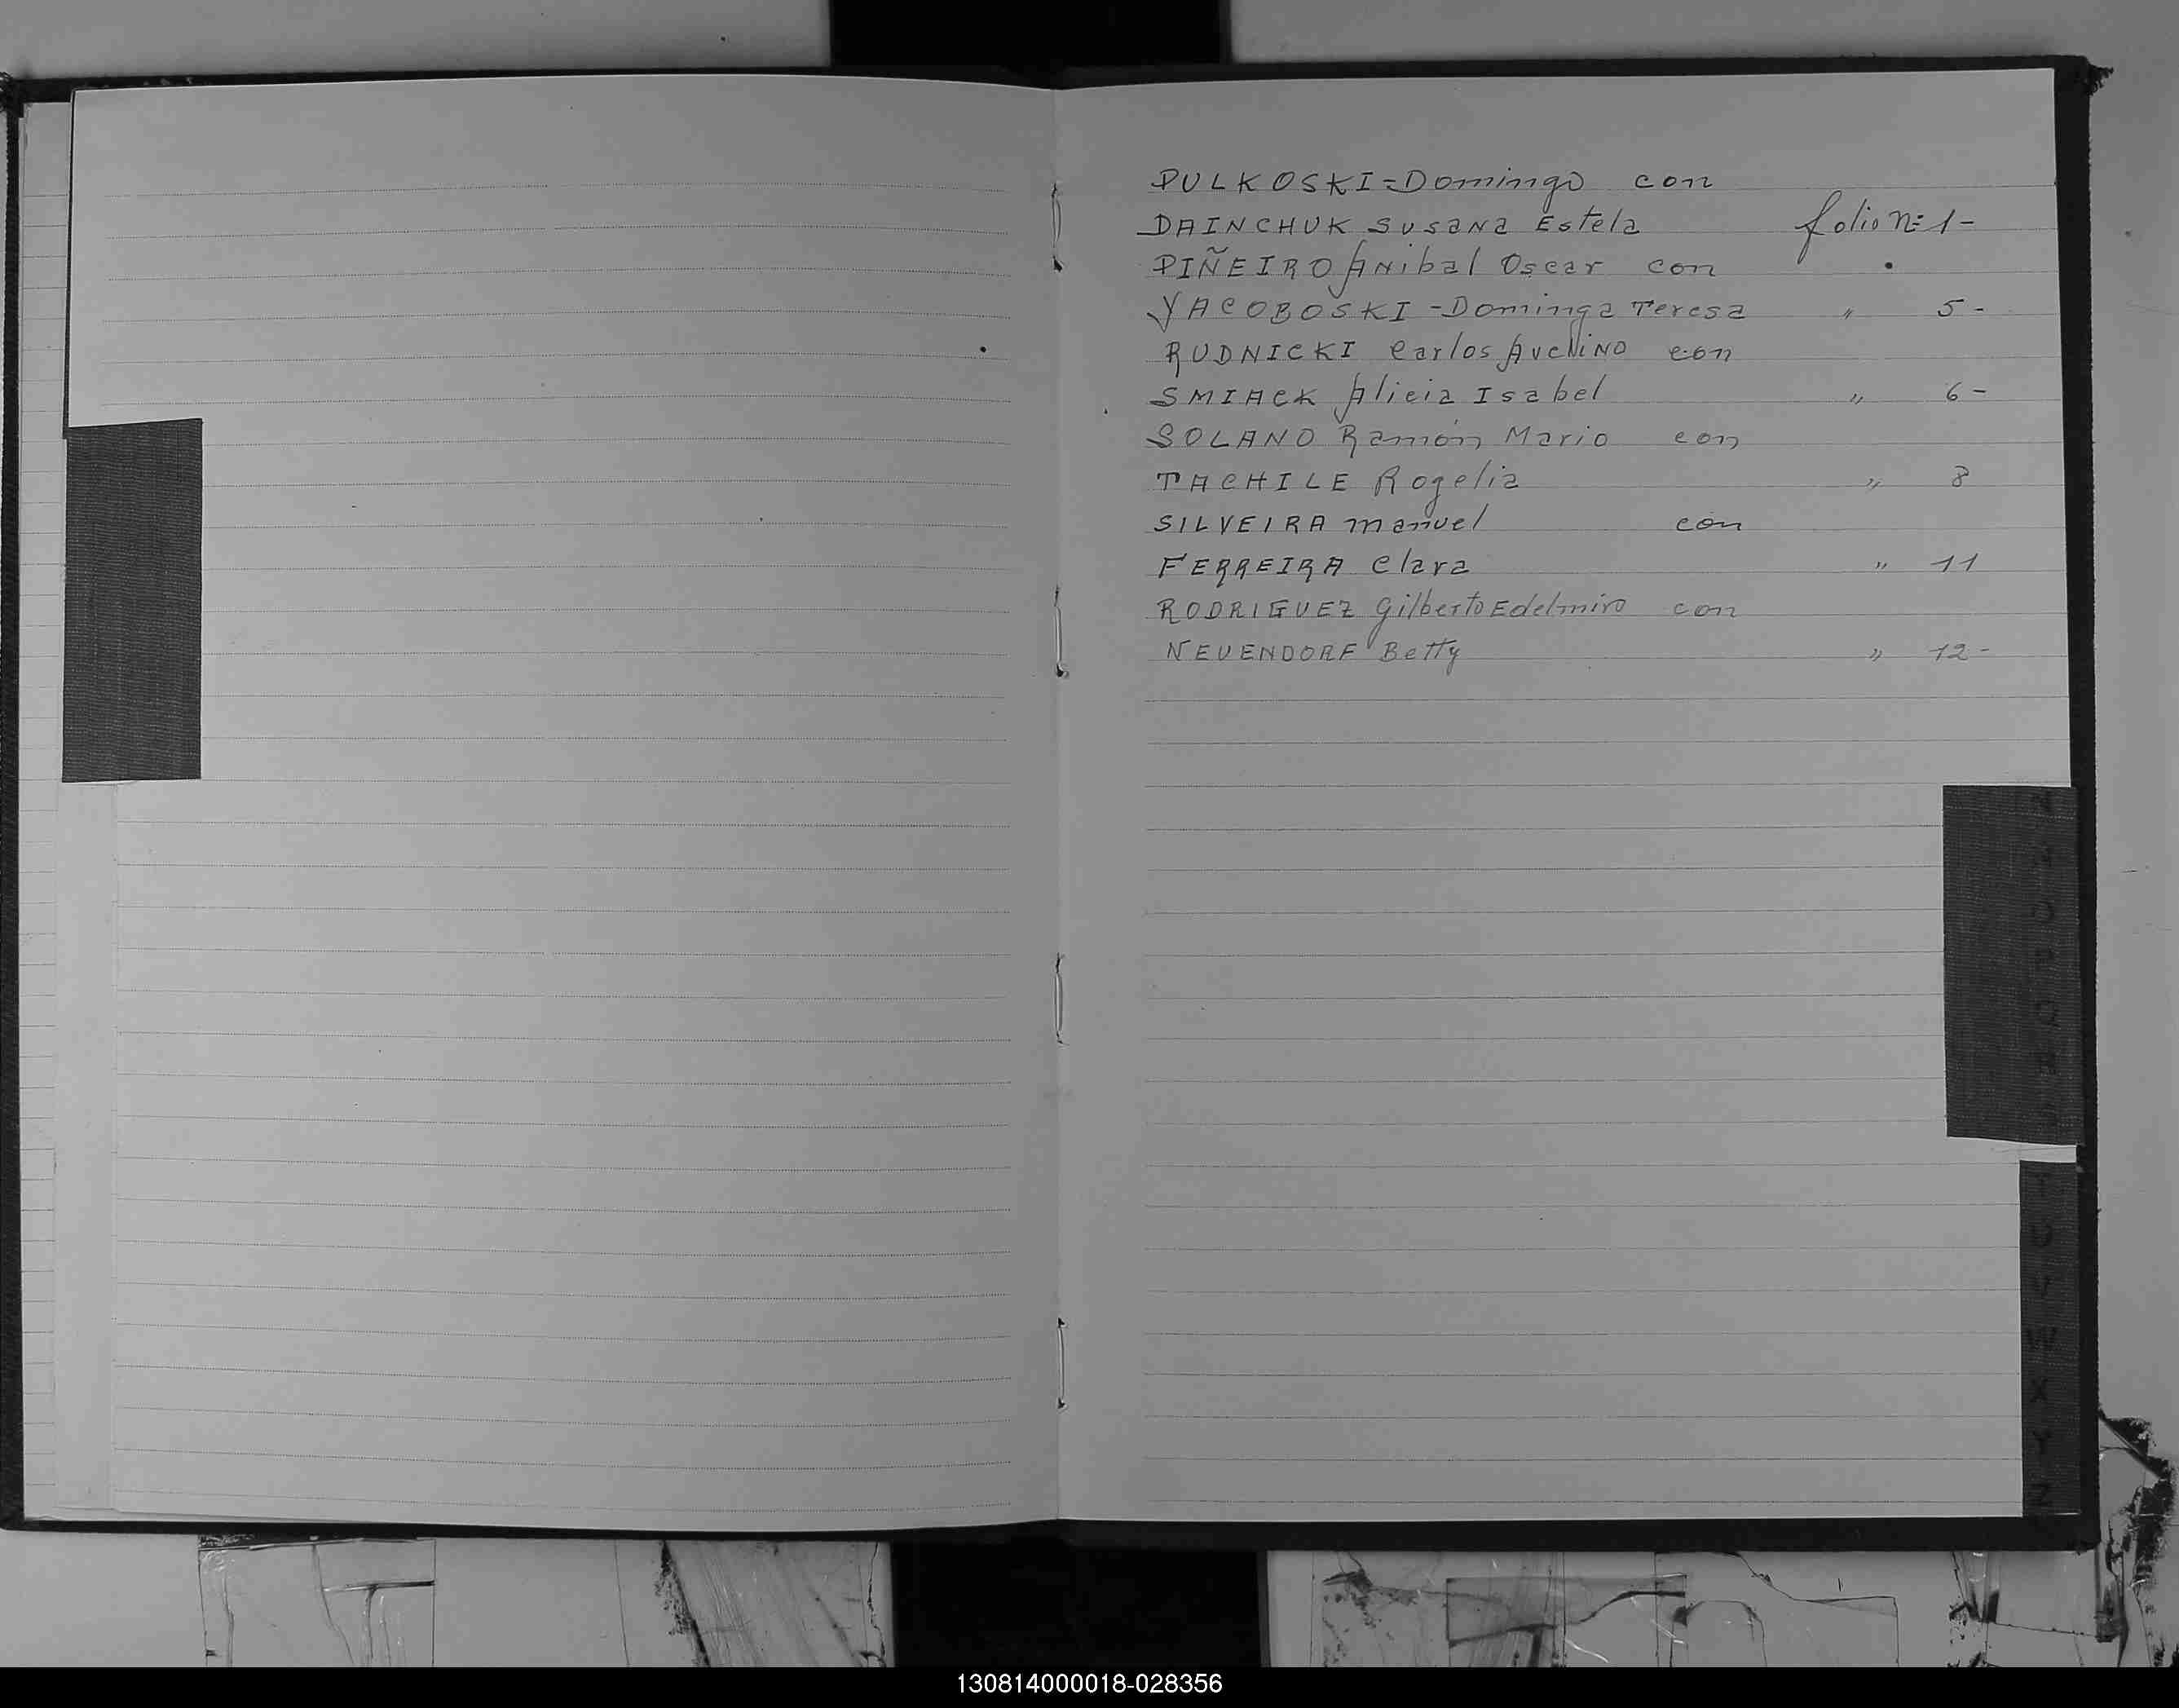 PULKOSKI=Domingo con
DAINCHUK Susana Estela folio nº 1-
PIÑEIRO Anibal Oscar con
YACOBOSKI-Dominga Teresa " 5-
RUDNICKI Carlos Avelino con
SMIACK Alicia Isabel " 6-
SOLANO Ramón Mario con
TACHILE Rogelia " 8
SILVEIRA manuel con
FERREIRA Clara " 11
RODRIGUEZ Gilberto Edelmiro con
NEUENDORF Betty " 12-
U
V
W
X
Y
Z
130814000018-028356